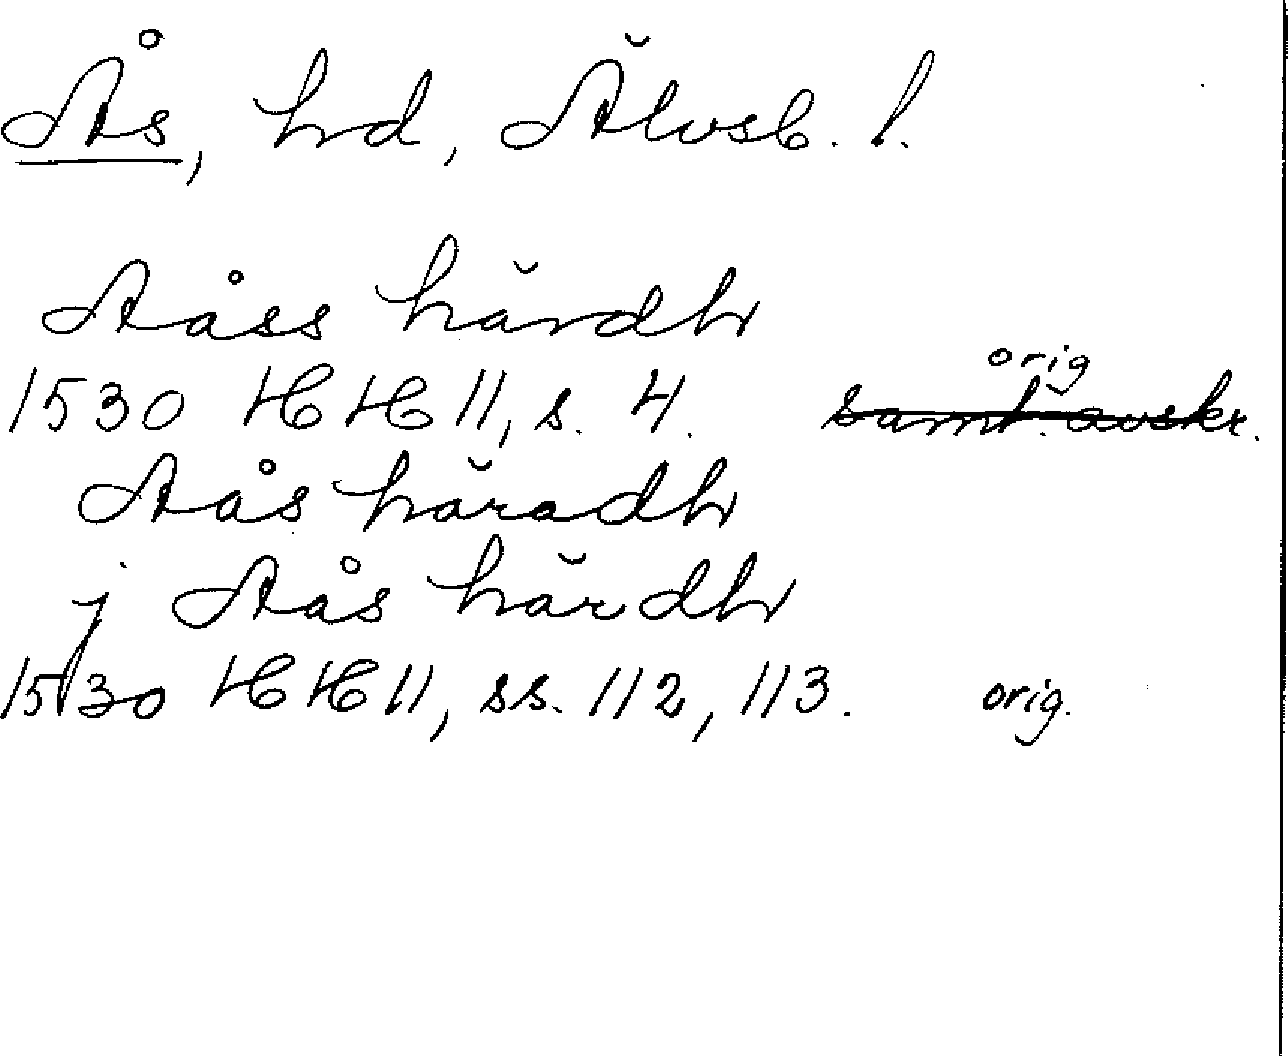 Ås, hd, Älvsb. l.
Aåss härdh
orig
1530 HH 11, s. 4. samt. avskr.
Aås häradh
j Aås härdh
1530 HH 11, ss. 112, 113. orig.